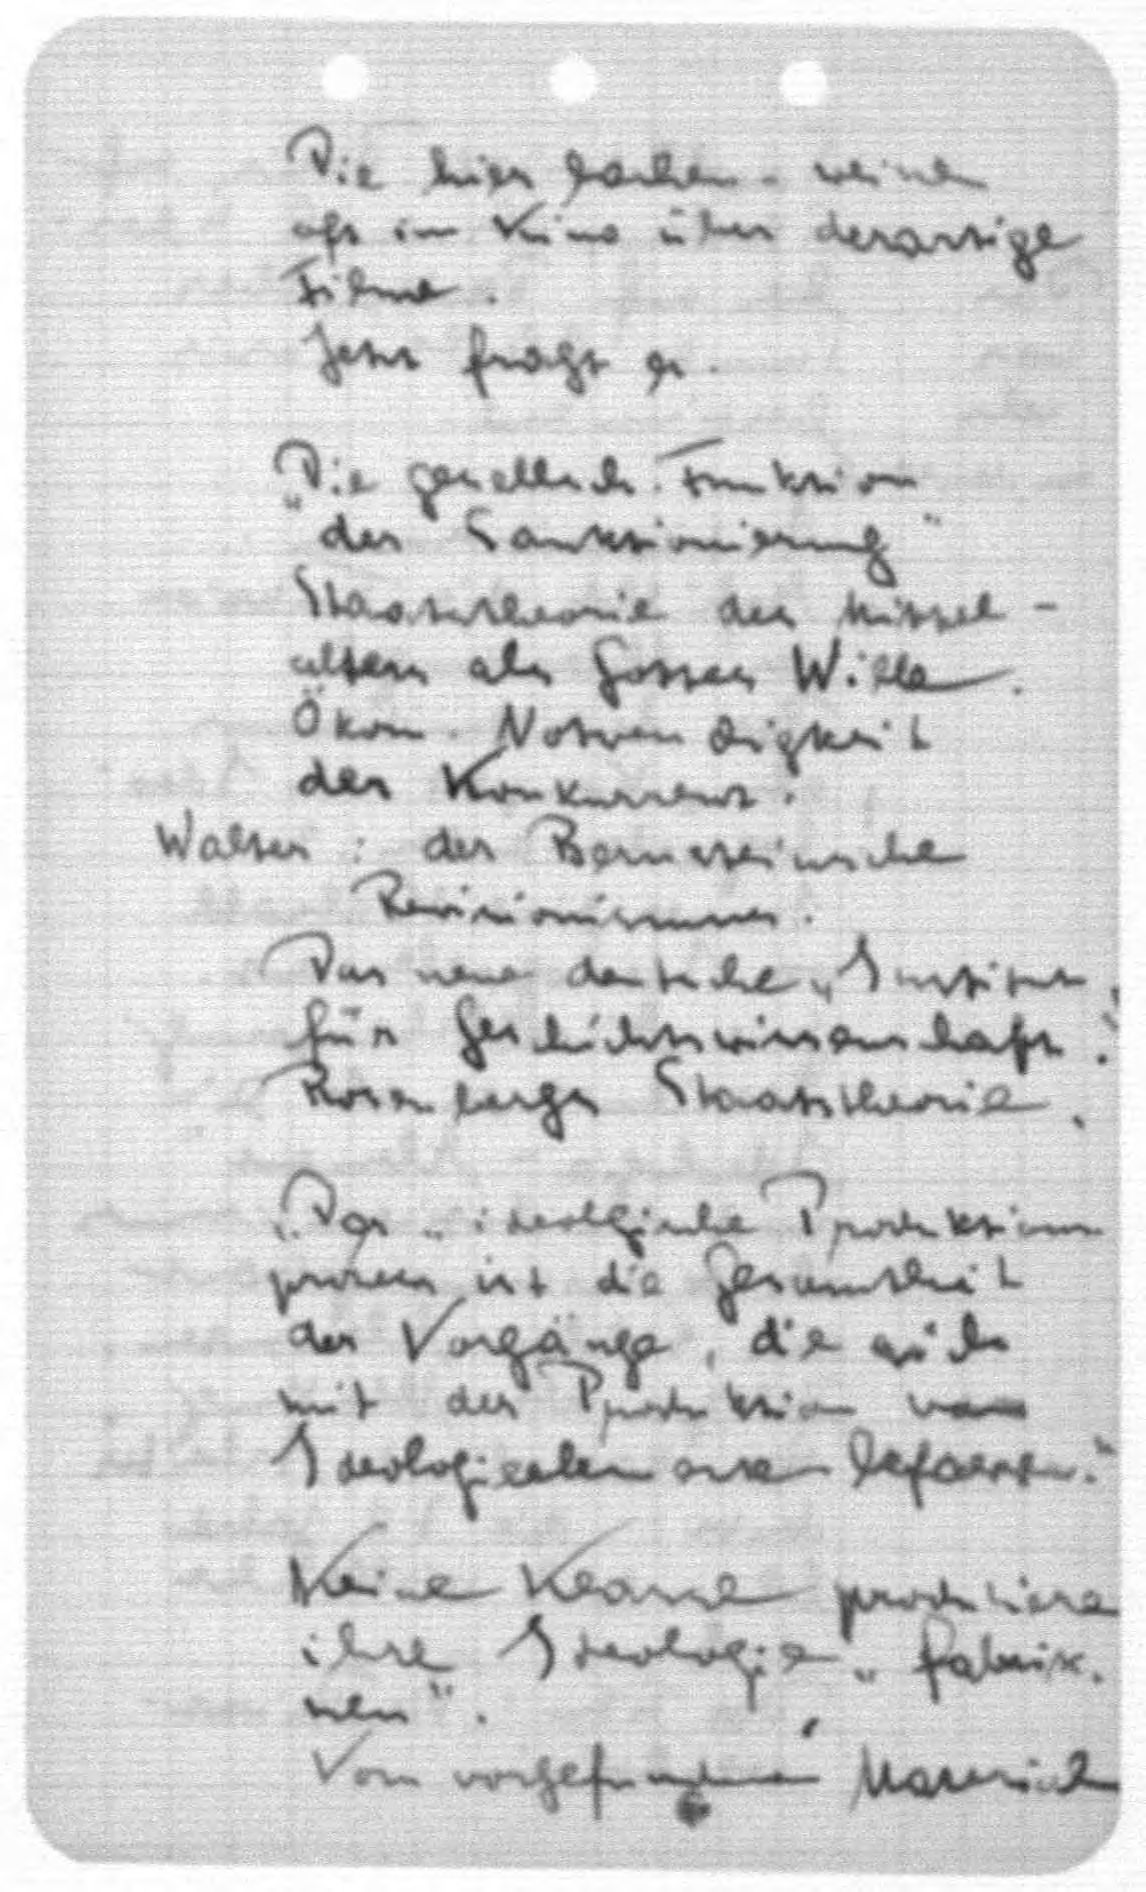 Die hier lachen - weinen
oft im Kino über derartige
Filme.
Jetzt fragt er.
„Die gesellsch. Funktion
der Sanktionierung"
Staatstheorie des Mittel-
alters als Gottes Wille.
Ökon. Notwendigkeit
der Konkurrenz.
Walter: der Bernsteinsche
Revisionismus.
Das neue deutsche „Institut
für Geschichtswissenschaft."
Rosenbergs Staatstheorie.
„Der „ideolgische Produktions
prozess ist die Gesamtheit
der Vorgänge, die sich
mit der Produktion von
Ideologieelementen befassen."
Keine Klasse produziere
ihre Ideologie „fabrik.
neu".
Vom vorgefundenen Material